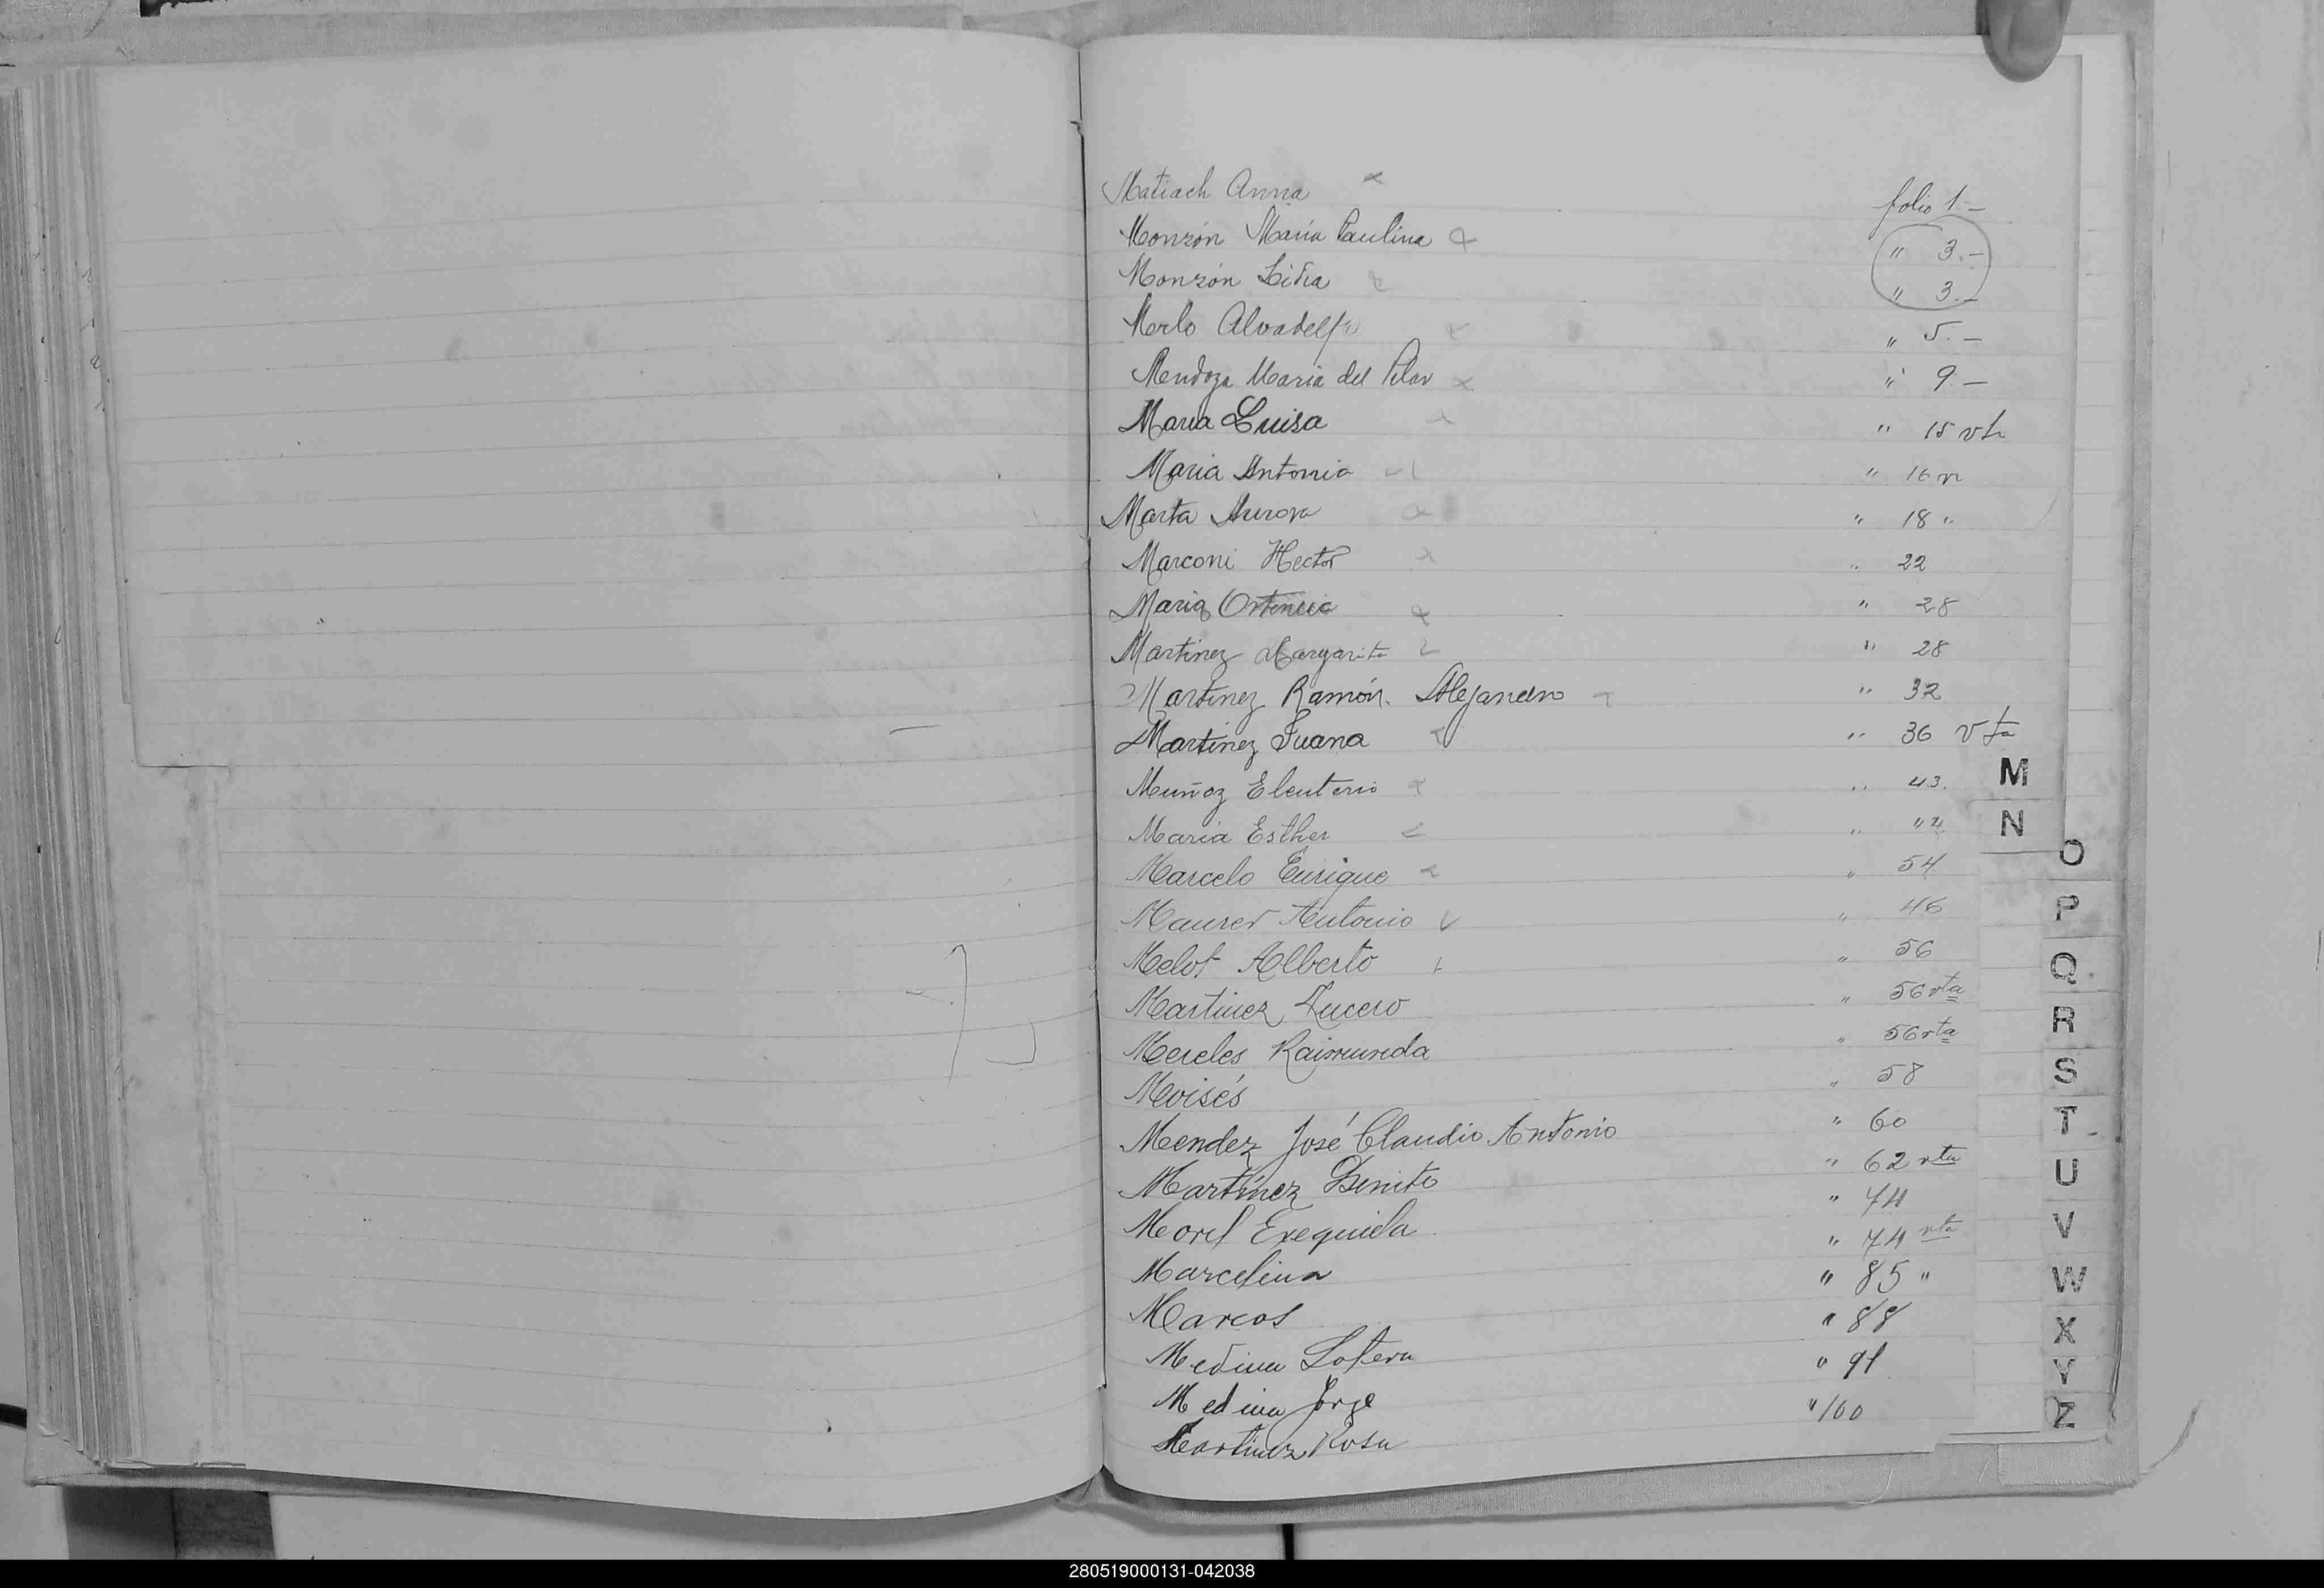 Matiach Anna folio 1.-
Monzón María Paulina " 3.-
Monzón Lidia " 3.-
Merlo " 5.-
Mendoza Maria del Pilar " 9.-
Maria Luisa " 15 vta
Maria Antonia " 16
Marta Aurora " 18 "
Marconi Hector " 22
Maria Ortencia " 28
Martinez Margarita " 28
Martinez Ramón Alejandro " 32
Martinez Juana " 36 vta
Muñoz Eleuterio " 43.
Maria Esther "
Marcelo Enrique " 54
Maurer Antonio " 46
Melot Alberto " 56
Martinez Lucero " 56 vta
Mereles Raimunda " 56 vta
Moisés " 58
Mendez José Claudio Antonio " 60
Martínez Benito " 62 vta
Morel Exequiela " 74
Marcelina " 74 vta
Marcos " 85 "
Medina " 88
Medina Jorge " 91
Martinez Rosa " 100
M
N
O
P
Q
R
S
T
U
V
W
X
Y
Z
280519000131-042038